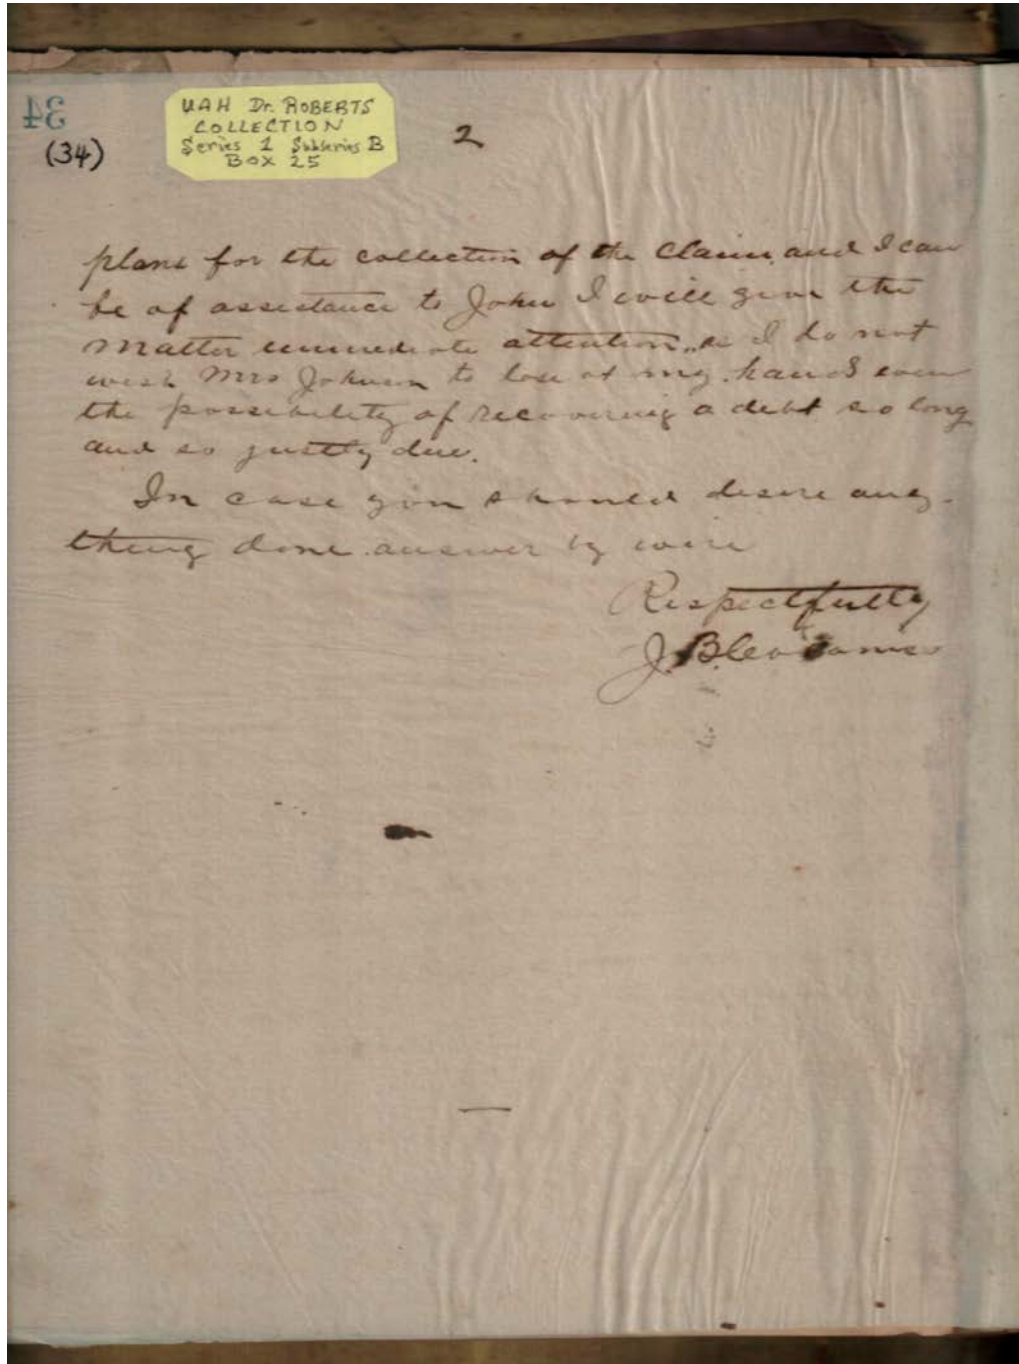 34
(34)
UAH Dr. ROBERTS
COLLECTION
Series 1 Subseries B
BOX 25
2
plans for the collection of the claim, and I can
be of assistance to John I will give the
matter immediate attention, as I do not
wish Mrs Johnson to lose at my hands even
the possibility of recovering a debt so long
and so justly due.
In case you should desire any-
thing done answer by wire
Respectfully
J. B.